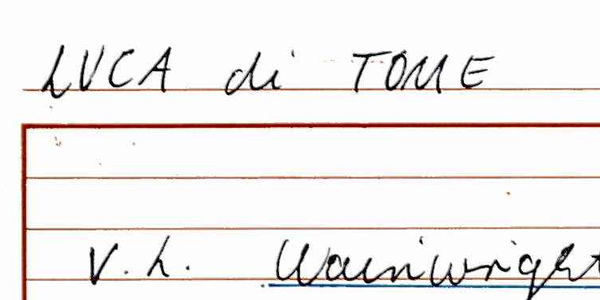 LUCA di TOME
V. L. Wainwright